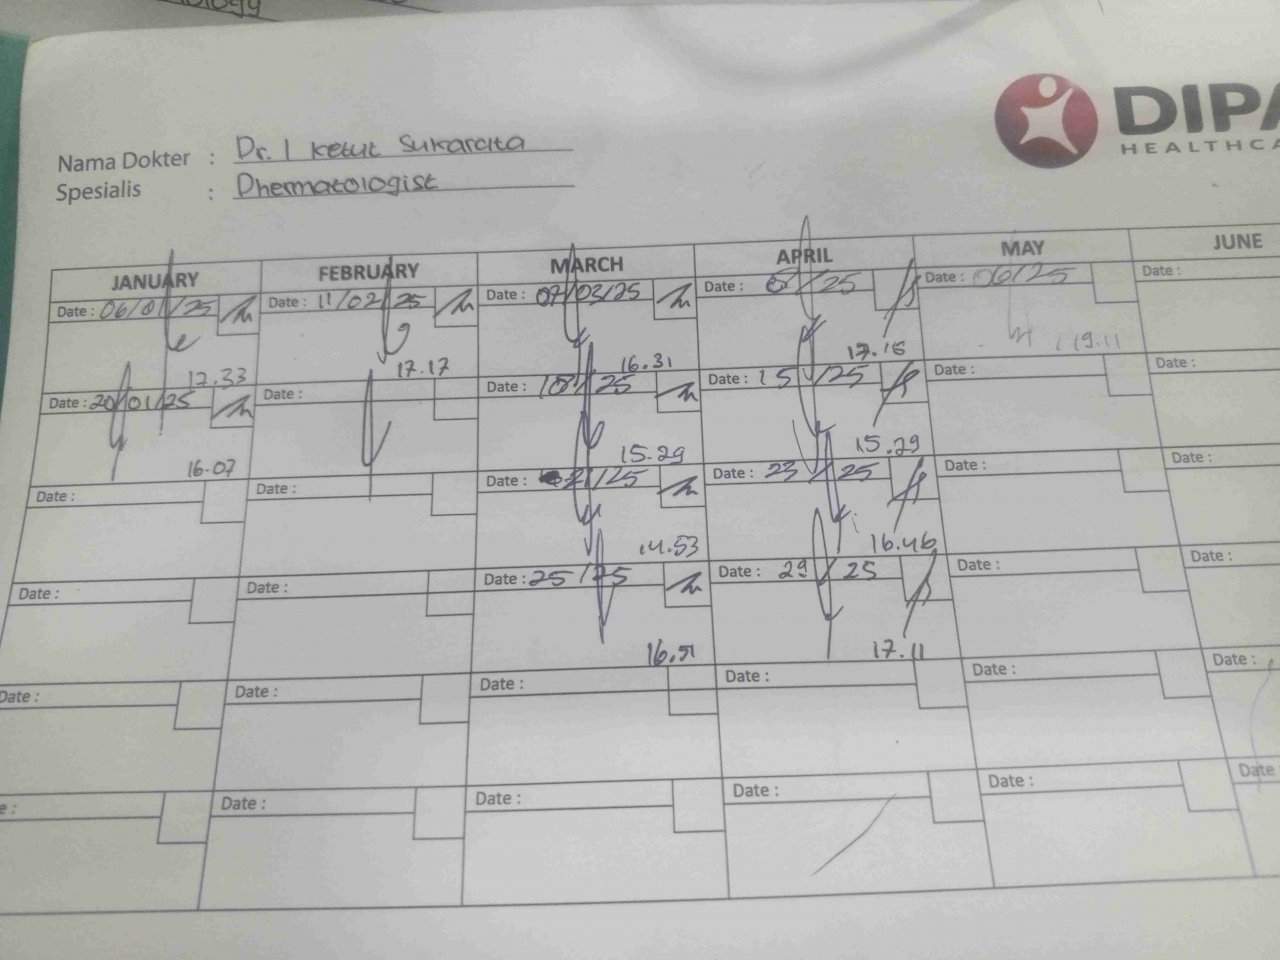 DIPA
HEALTHCA
Nama Dokter : Dr. I Ketut Sukarcita
Spesialis : Dhermatologist
JANUARY FEBRUARY MARCH APRIL MAY JUNE
Date : 06/01/25 Date : 11/02/25 Date : 07/03/25 Date : 8/25 Date : 06/25 Date :
12.33 17.17 16.31 17.16 19.11
Date : 20/01/25 Date : Date : 18/25 Date : 15/25 Date : Date :
16.07 15.29 15.29
Date : Date : Date : 21/25 Date : 23/25 Date : Date :
14.53 16.46
Date : Date : Date : 25/25 Date : 29/25 Date : Date :
16.51 17.11
Date : Date : Date : Date : Date : Date :
Date : Date : Date : Date : Date